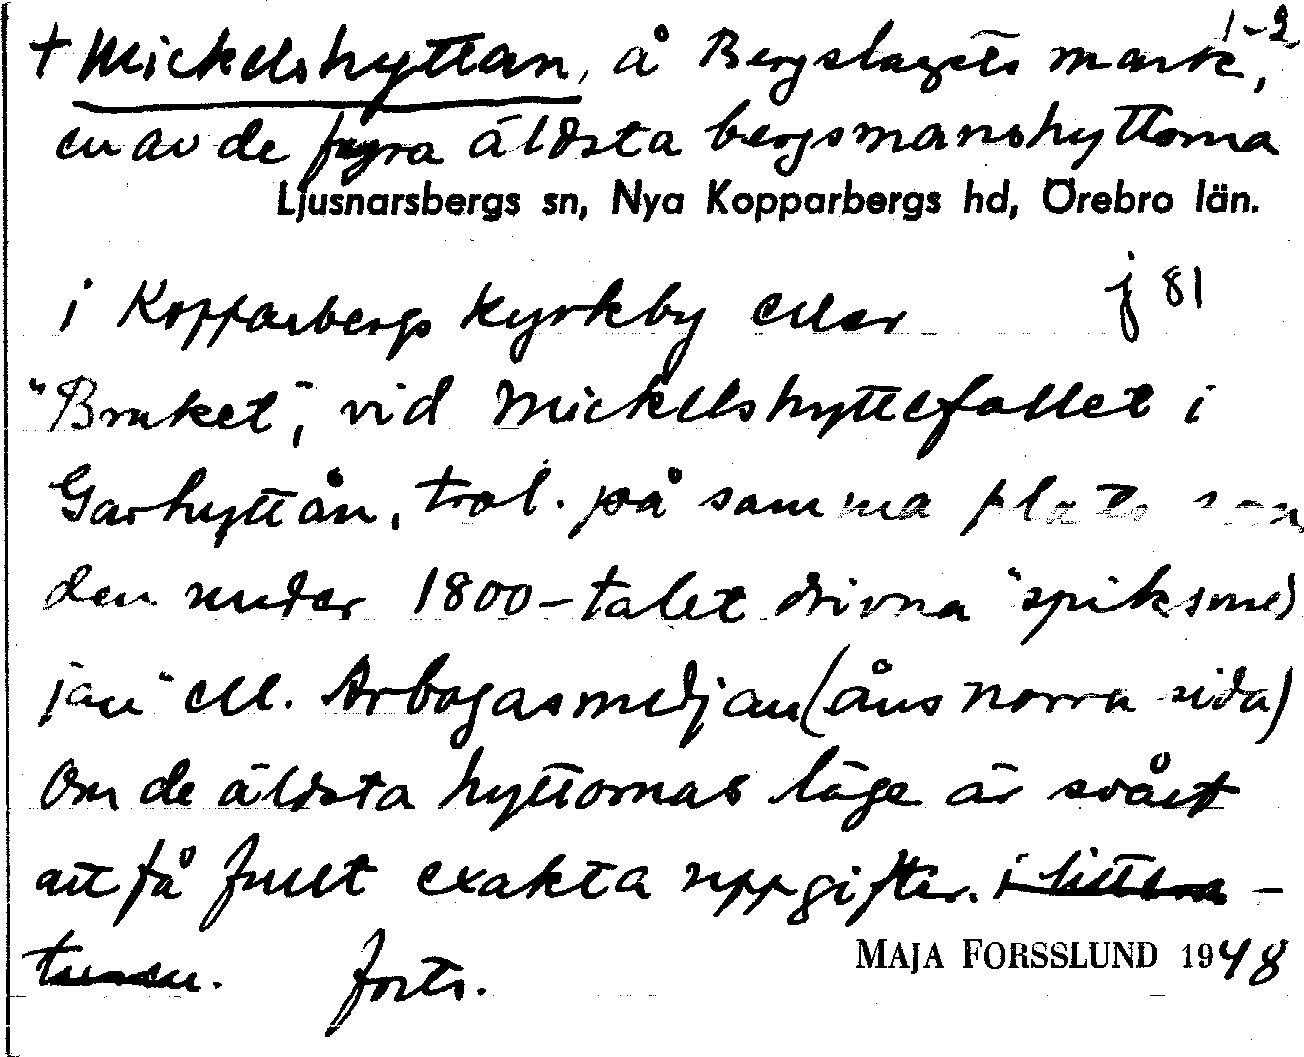 1-2
+ Mickelshyttan, å Bergslagets mark,
en av de fyra äldsta bergsmanshyttorna
Ljusnarsbergs sn, Nya Kopparbergs hd, Örebro län.
i Kopparbergs kyrkby eller j 81
"Bruket", vid Mickelshyttefallet i
Garhyttån, trol. på samma plats som
den under 1800-talet drivna "spiksmed
jan" ell. Arbogasmedjan (åns norra sida)
Om de äldsta hyttornas läge är svårt
att få fullt exakta uppgifter. i littera-
turen. forts.
MAJA FORSSLUND 1948